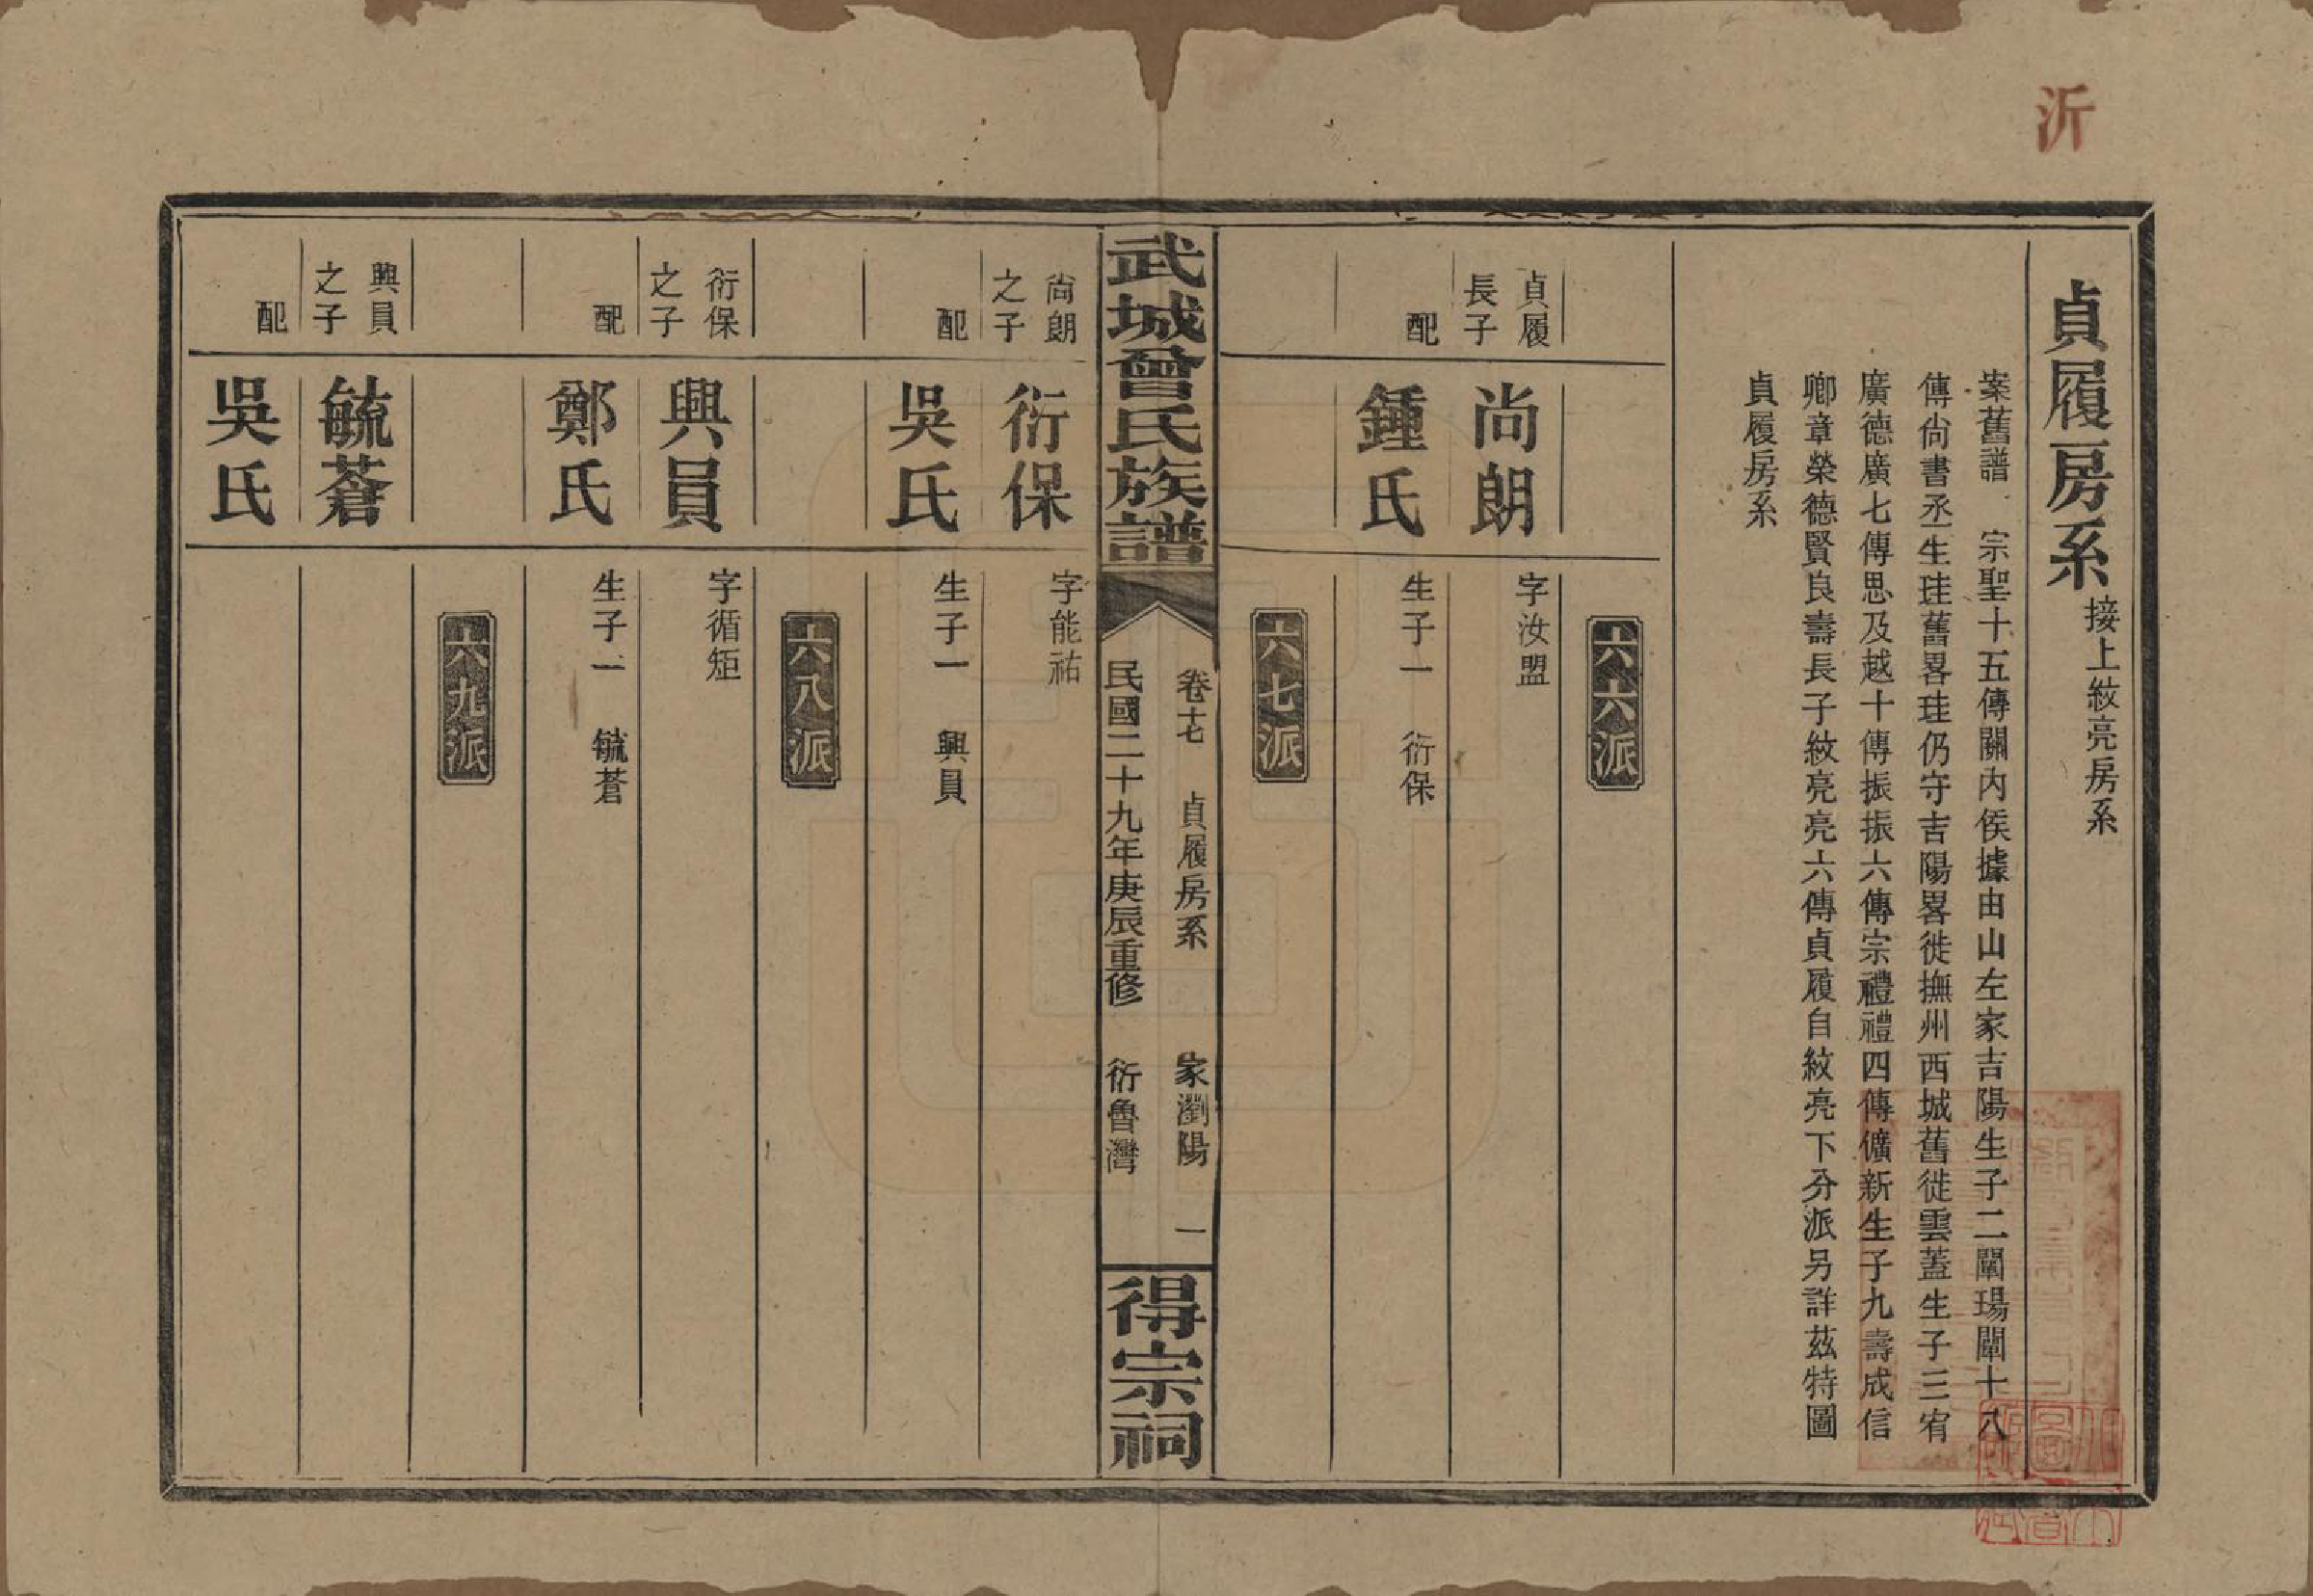 沂
貞履房系 接上紋亮房系
案舊譜 宗聖十五傳關內侯據由山左家吉陽生子二闡瑒闡十八
傳尙書丞生珪舊畧珪仍守吉陽畧徙撫州西城舊徙雲蓋生子三宥
廣德廣七傳思及越十傳振振六傳宗禮禮四傳儣新生子九壽成信
卿章榮德賢良壽長子紋亮亮六傳貞履自紋亮下分派另詳茲特圖
貞履房系
六六派
貞履長子 尚朗 字汝盟
配 鍾氏 生子一 衍保
六七派
武城曾氏族譜 卷十七 貞履房系 家瀏陽 一
民國二十九年庚辰重修 衍魯灣
得宗祠
尙朗之子 衍保 字能祐
配 吳氏 生子一 興員
六八派
衍保之子 興員 字循矩
配 鄭氏 生子一 毓蒼
六九派
興員之子 毓蒼
配 吳氏